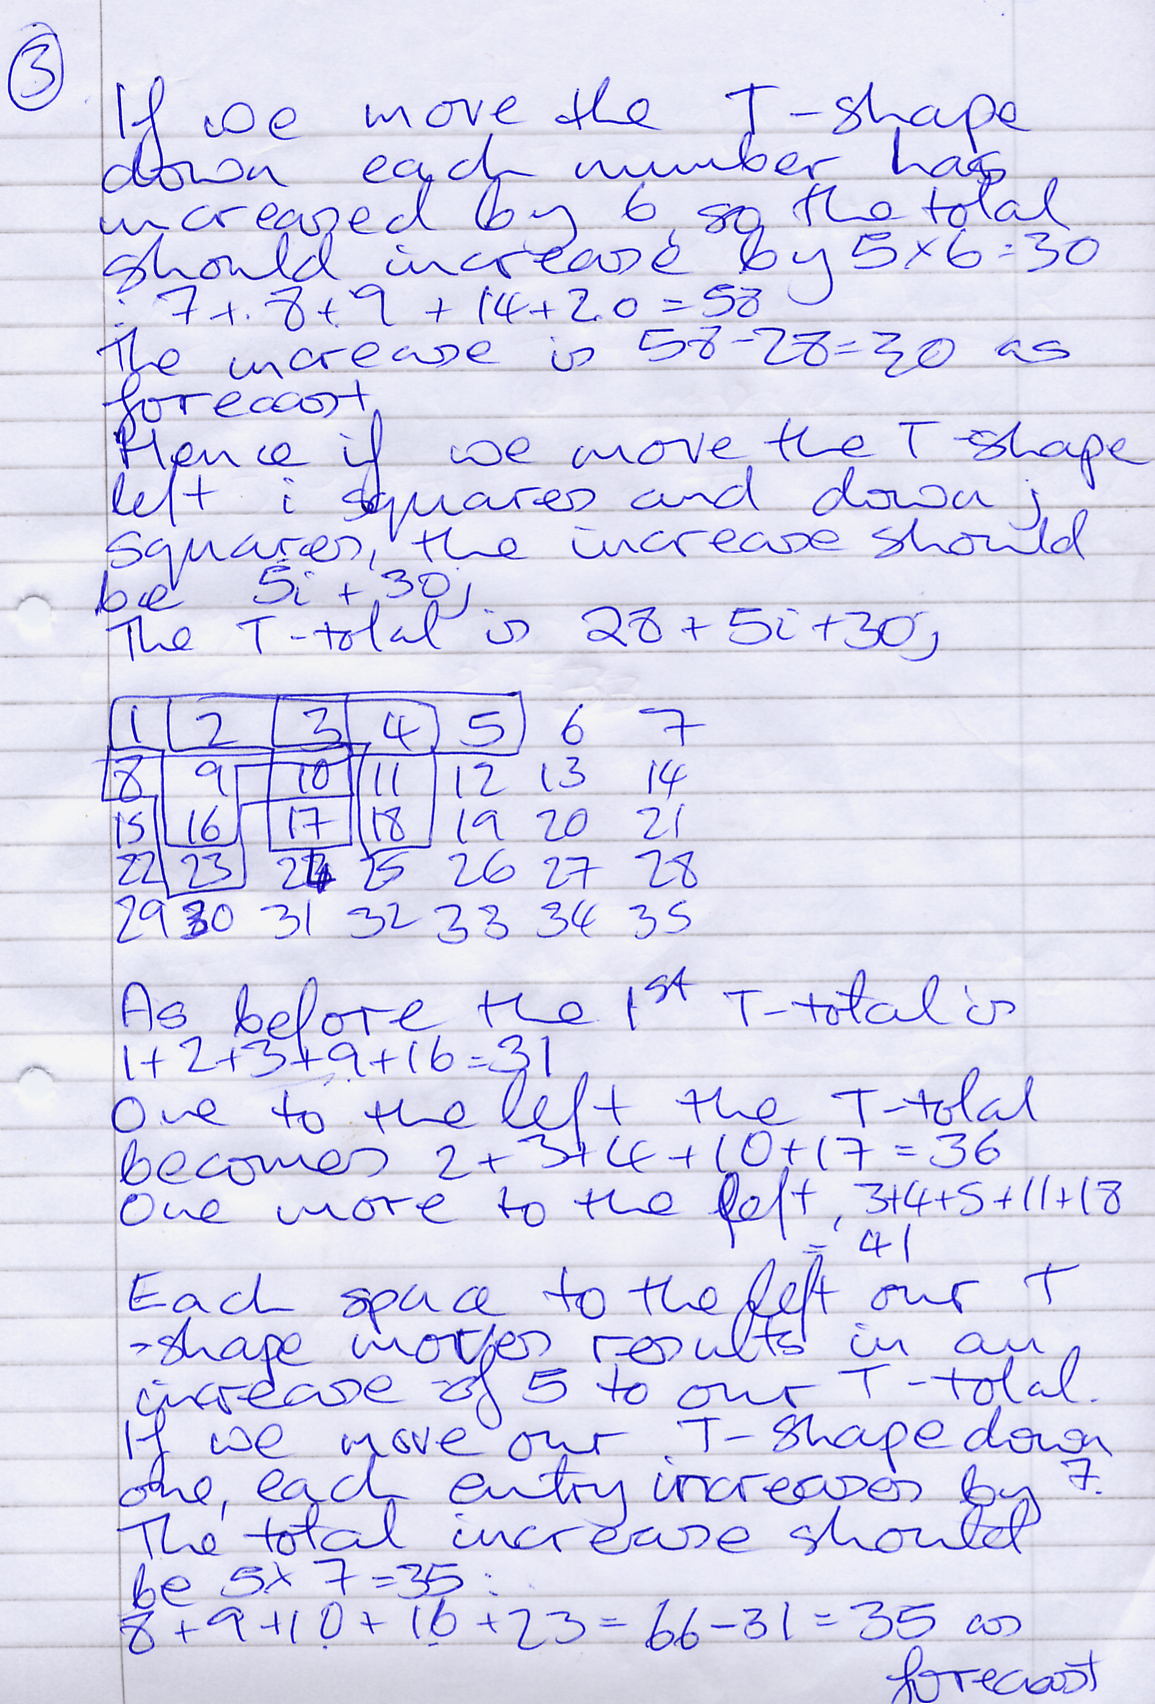 3
If we move the T-shape
down each number has
increased by 6, so the total
should increase by 5×6=30
: 7+8+9+14+20=58
The increase is 58-28=30 as
forecast.
Hence if we move the T-shape
left i squares and down j
squares, the increase should
be 5i+30j
The T-total is 28+5i+30j
1 2 3 4 5 6 7
8 9 10 11 12 13 14
15 16 17 18 19 20 21
22 23 24 25 26 27 28
29 30 31 32 33 34 35
As before the 1st T-total is
1+2+3+9+16=31
One to the left the T-total
becomes 2+3+4+10+17=36
One more to the left, 3+4+5+11+18
=41
Each space to the left our T
-shape moves results in an
increase of 5 to our T-total.
If we move our T-shape down
one, each entry increases by 7.
The total increase should
be 5×7=35:
8+9+10+16+23=66-31=35 as
forecast